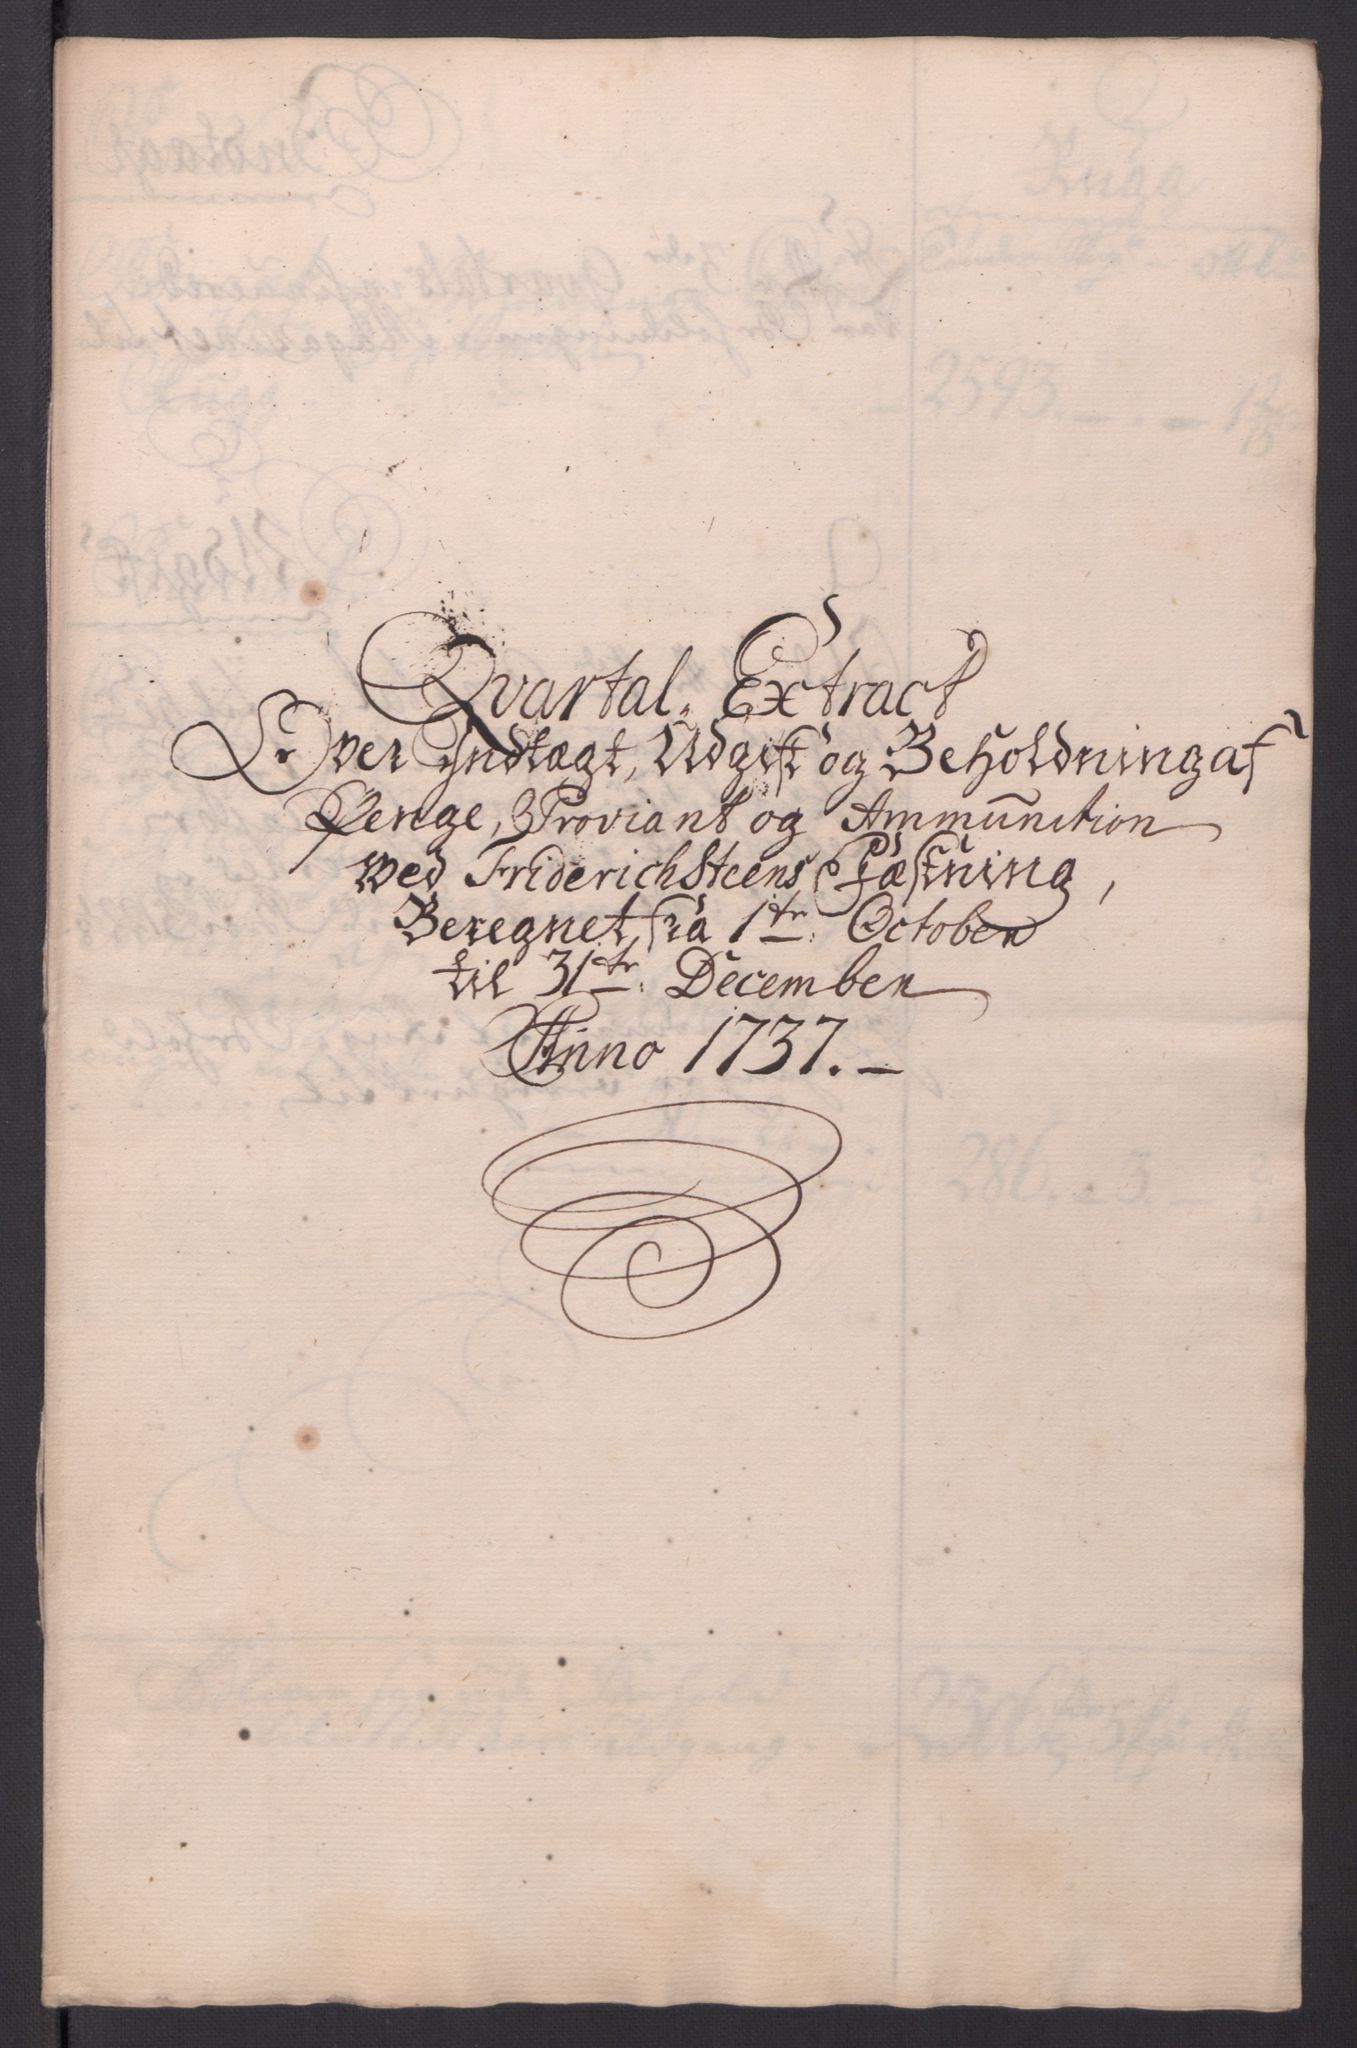 Qvartal. Extract
Over Indtægt, Udgift og Beholdning af
Penge, Proviant og Ammunition
ved Friderichsteens Fæstning,
Beregnet fra 1te. October
til 31te. December
Anno 1737.